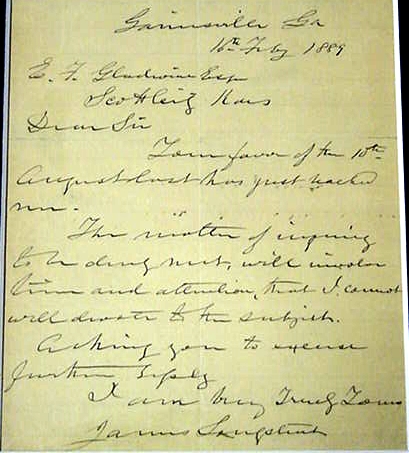 Gainesville Ga
16th Feby 1889
E. F. Gladwin Esq
Scott City Kans
Dear Sir
Your favor of the 10th
August last has just reached
me.
The matter of inquiry
to be, will involve
time and attention, that I cannot
well devote to the subject.
Asking you to excuse
further reply
I am Very Truly Yours
James Longstreet